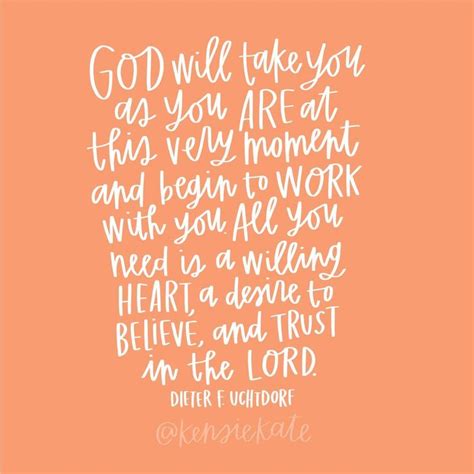 GOD will take you
as you ARE at
this very moment
and begin to WORK
with you. All you
need is a willing
HEART, a desire to
BELIEVE, and TRUST
in the LORD.
DIETER F. UCHTDORF
@kensiekate